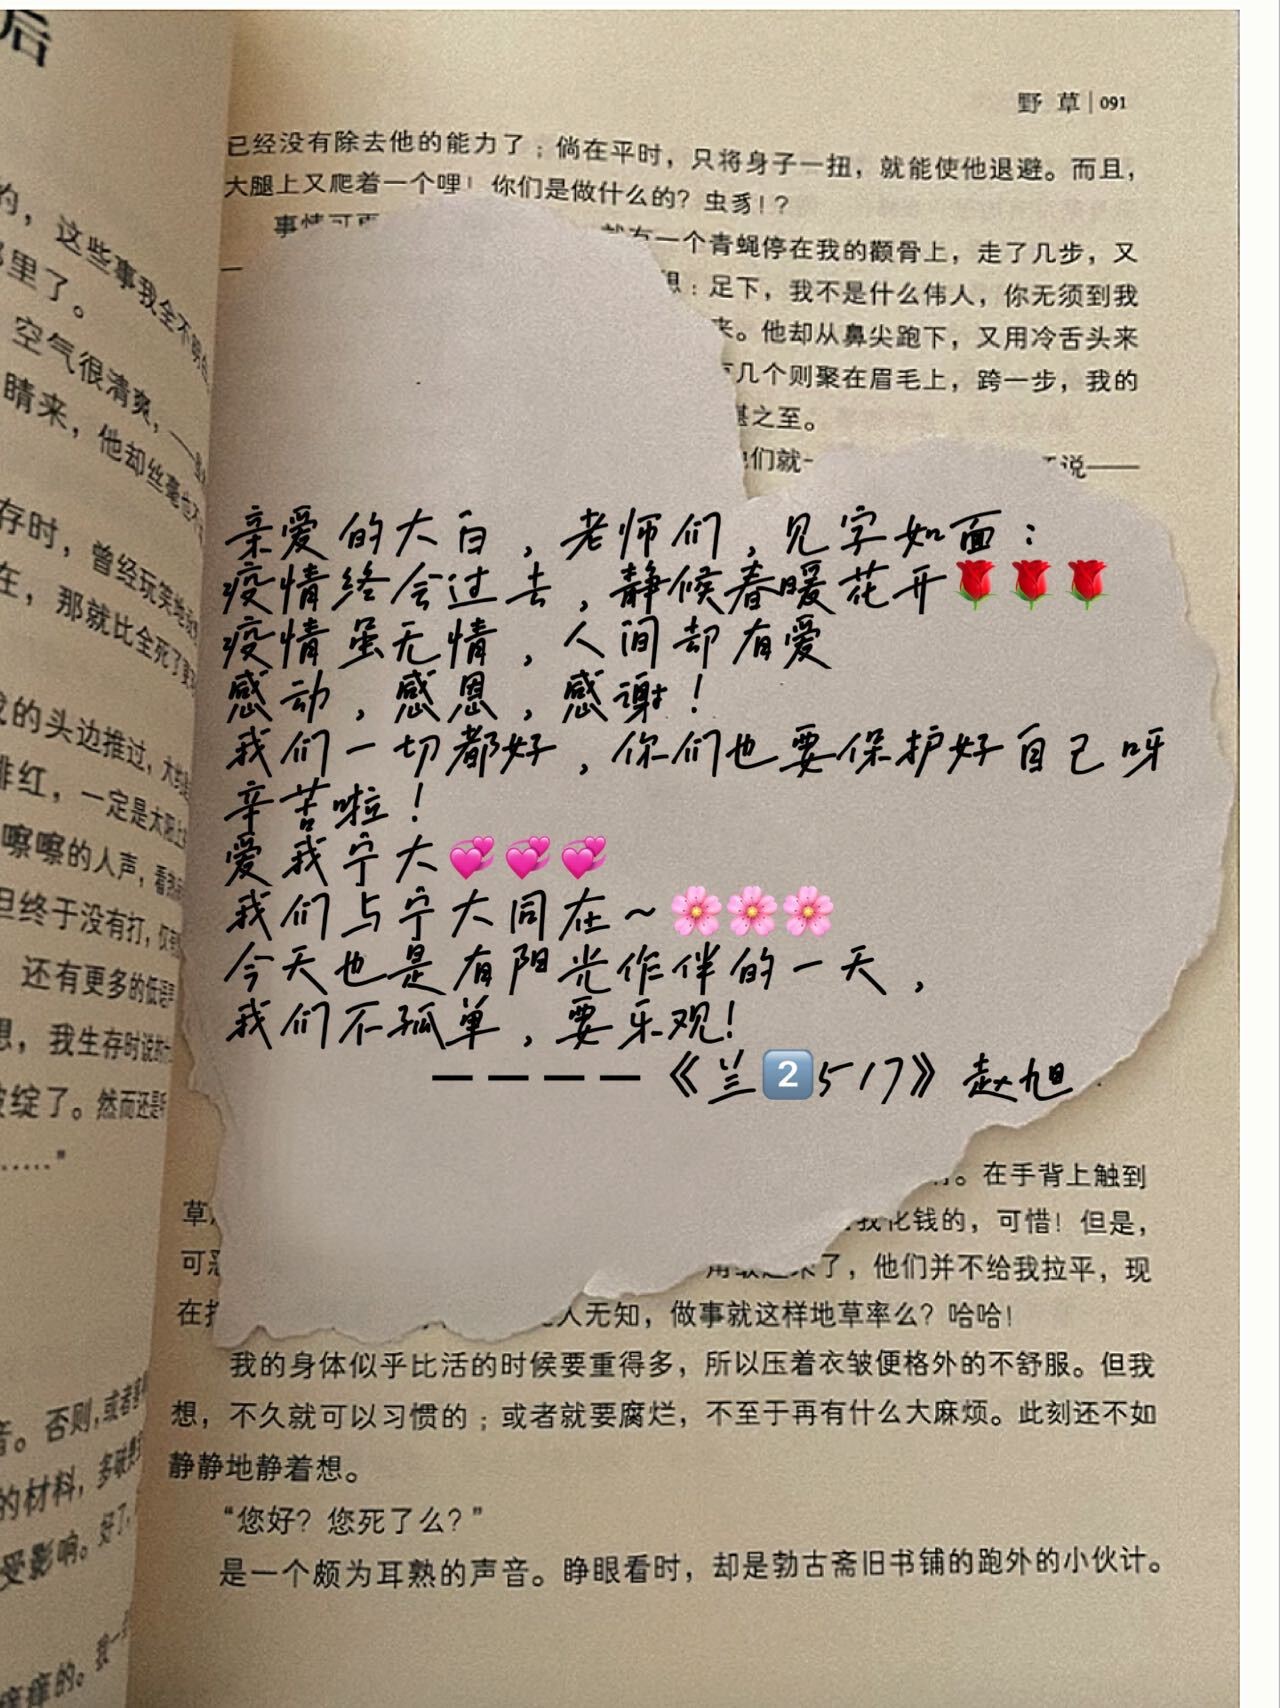 后
野 草 | 091
已经没有除去他的能力了；倘在平时，只将身子一扭，就能使他退避。而且，
大腿上又爬着一个哩！你们是做什么的？虫豸！？
事情可更
就有一个青蝇停在我的颧骨上，走了几步，又
想：足下，我不是什么伟人，你无须到我
来。他却从鼻尖跑下，又用冷舌头来
几个则聚在眉毛上，跨一步，我的
堪之至。
他们就一
说——
的，这些事我全不明白
那里了。
空气很清爽，——
睛来，他却丝毫也不
存时，曾经玩笑地
在，那就比全死了更
我的头边推过，大约
绯红，一定是太阳上
嚓嚓的人声，看热
但终于没有打，仅有
还有更多的低语声
想，我生存时说的
破绽了。然而还是
……”
亲爱的大白，老师们，见字如面：
疫情终会过去，静候春暖花开🌹🌹🌹
疫情虽无情，人间却有爱
感动，感恩，感谢！
我们一切都好，你们也要保护好自己呀
辛苦啦！
爱我宁大💞💞💞
我们与宁大同在~🌸🌸🌸
今天也是有阳光作伴的一天，
我们不孤单，要乐观！
————《兰2️⃣517》赵旭
。在手背上触到
草
我化钱的，可惜！但是，
可恶
了，他们并不给我拉平，现
在
人无知，做事就这样地草率么？哈哈！
我的身体似乎比活的时候要重得多，所以压着衣皱便格外的不舒服。但我
想，不久就可以习惯的；或者就要腐烂，不至于再有什么大麻烦。此刻还不如
静静地静着想。
“您好？您死了么？”
是一个颇为耳熟的声音。睁眼看时，却是勃古斋旧书铺的跑外的小伙计。
音。否则，或者
的材料，多
受影响。好了，
痒的。我一